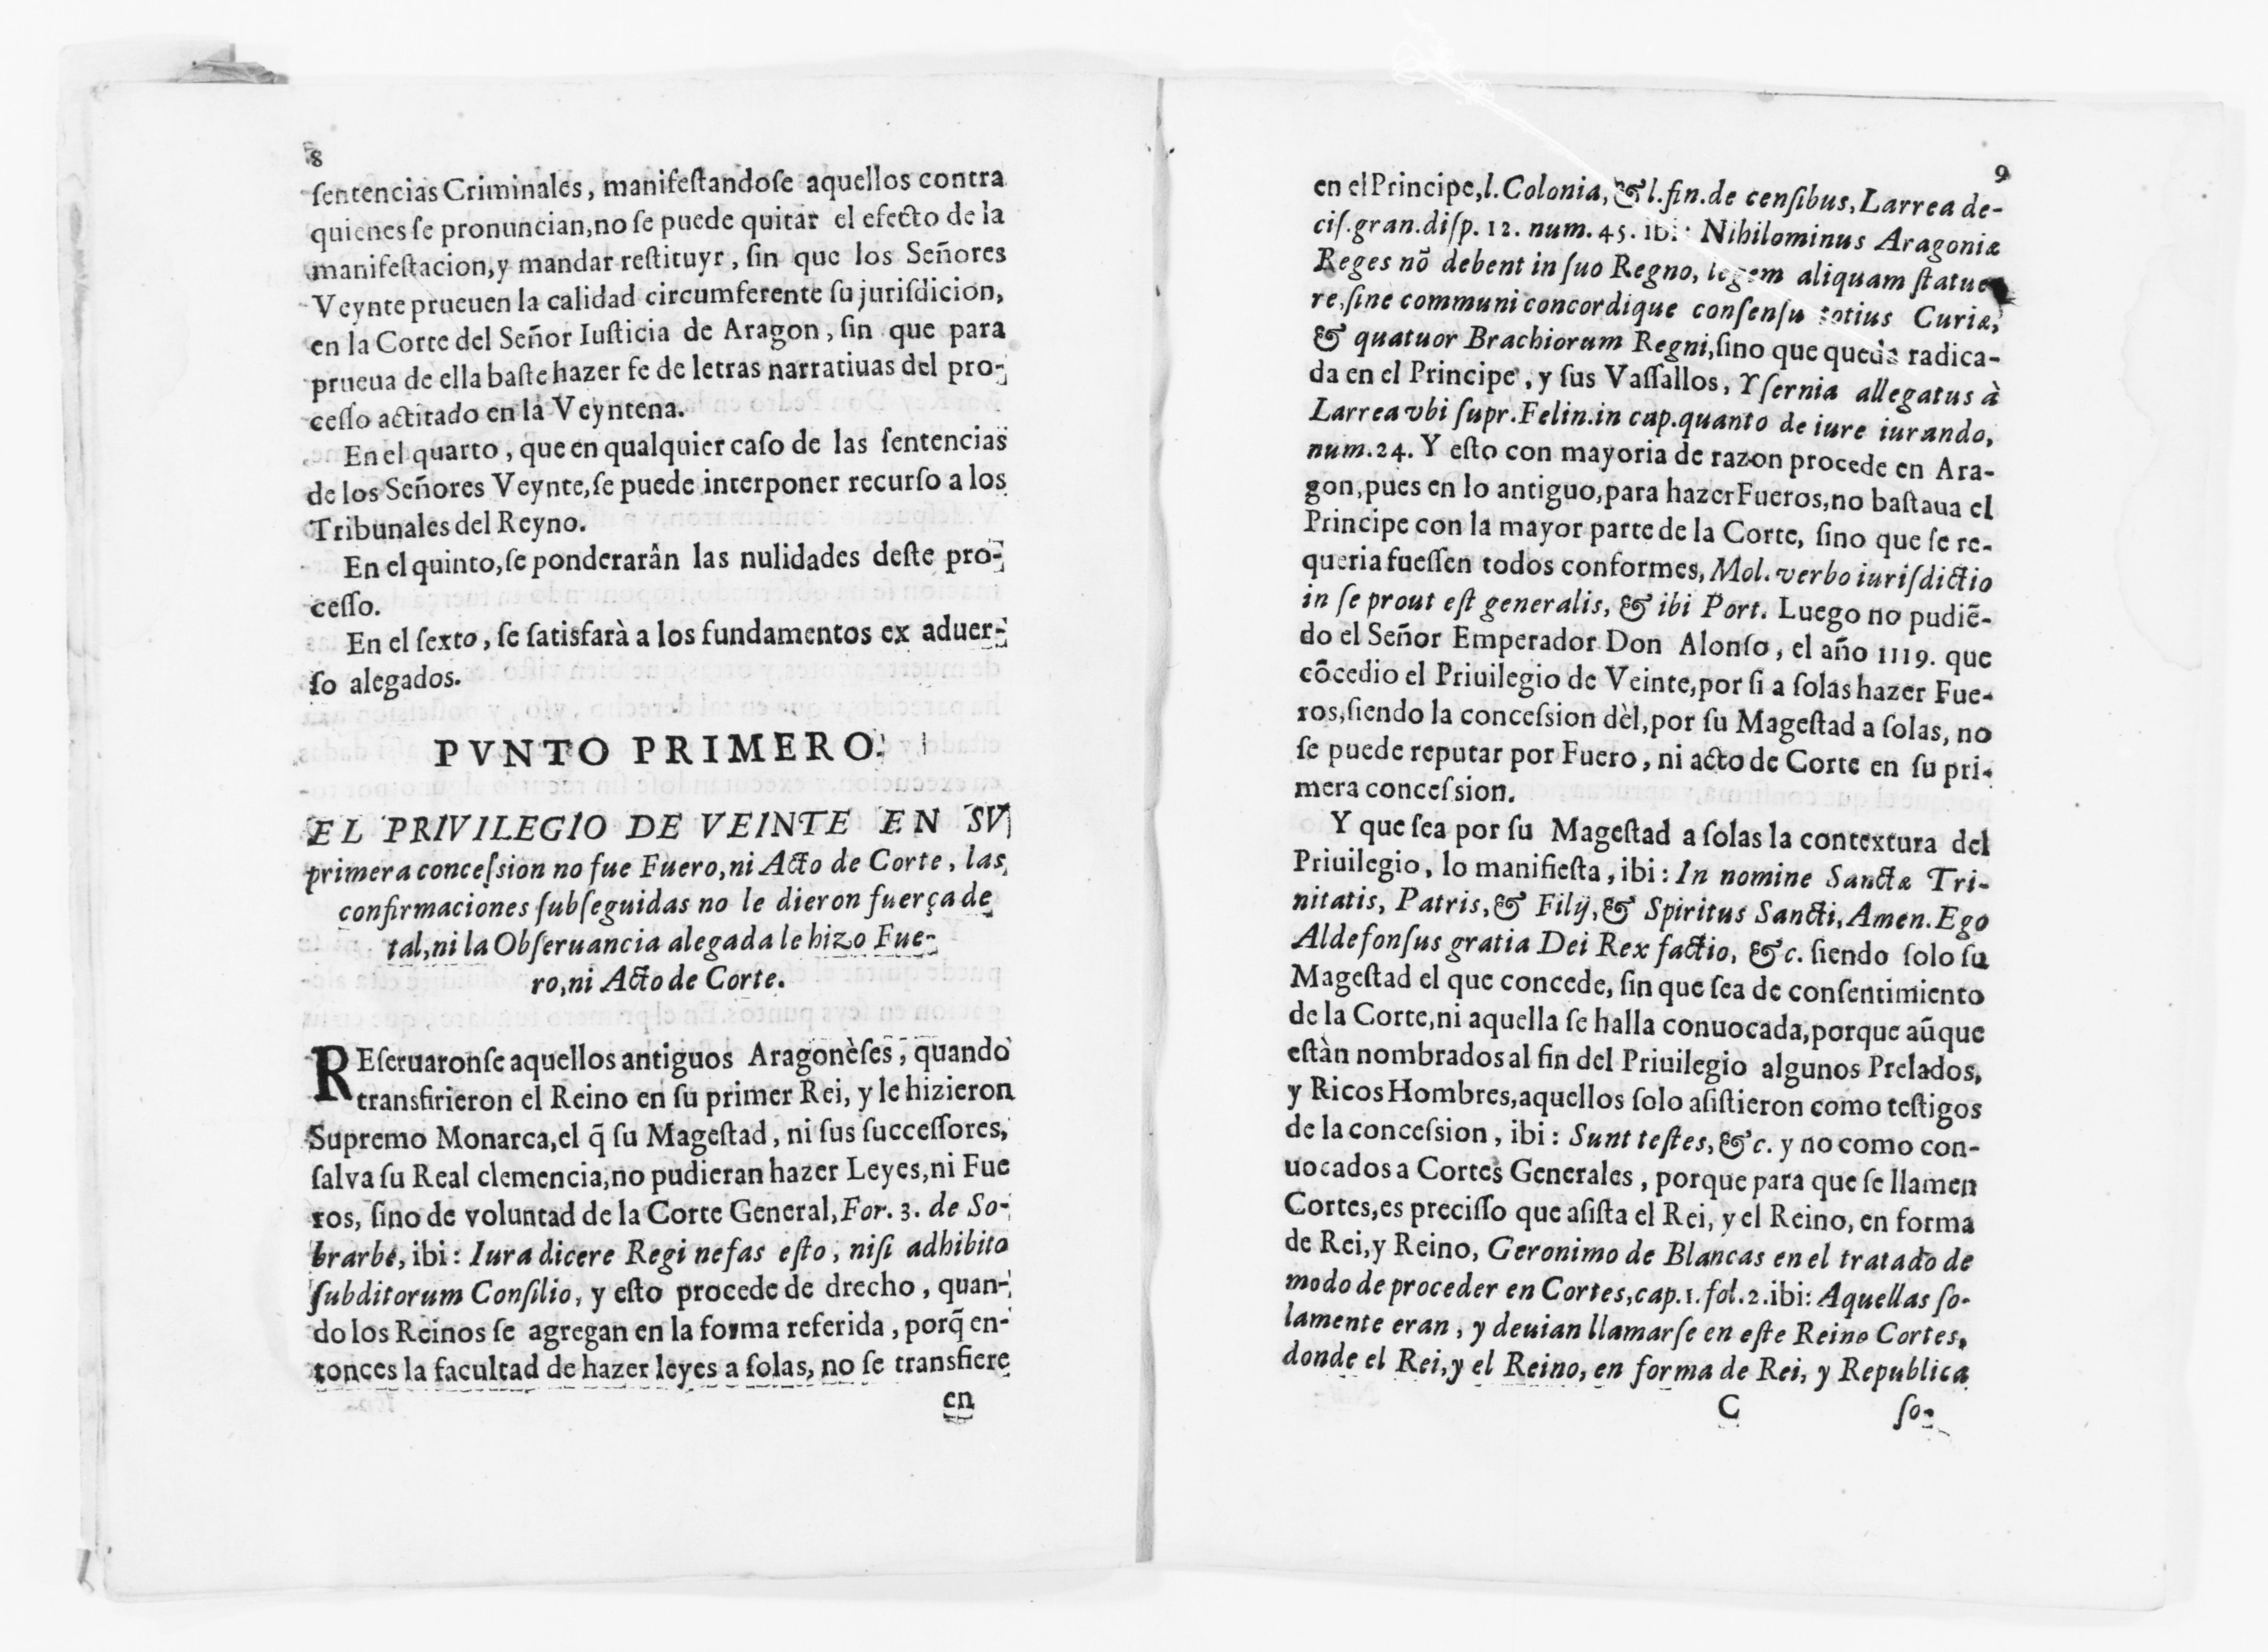 8
ſentencias Criminales, manifeſtandoſe aquellos contra
quienes ſe pronuncian, no ſe puede quitar el efecto de la
manifeſtacion, y mandar reſtituyr, ſin que los Señores
Veynte prueuen la calidad circumferente ſu juriſdicion,
en la Corte del Señor Iuſticia de Aragon, ſin que para
prueua de ella baſte hazer fe de letras narratiuas del pro-
ceſſo actitado en la Veyntena.
En el quarto, que en qualquier caſo de las ſentencias
de los Señores Veynte, ſe puede interponer recurſo a los
Tribunales del Reyno.
En el quinto, ſe ponderarân las nulidades deſte pro-
ceſſo.
En el ſexto, ſe ſatisfarà a los fundamentos ex aduer-
ſo alegados.
PVNTO PRIMERO.
EL PRIVILEGIO DE VEINTE EN SV
primera conceſsion no fue Fuero, ni Acto de Corte, las
confirmaciones ſubſeguidas no le dieron fuerça de
tal, ni la Obſeruancia alegada le hizo Fue-
ro, ni Acto de Corte.
REſeruaronſe aquellos antiguos Aragonèſes, quando
transfirieron el Reino en ſu primer Rei, y le hizieron
Supremo Monarca, el q̃ ſu Mageſtad, ni ſus ſucceſſores,
ſalva ſu Real clemencia, no pudieran hazer Leyes, ni Fue
ros, ſino de voluntad de la Corte General, For. 3. de So-
brarbe, ibi: Iura dicere Regi nefas eſto, niſi adhibito
ſubditorum Conſilio, y eſto procede de drecho, quan-
do los Reinos ſe agregan en la forma referida, porq̃ en-
tonces la facultad de hazer leyes a ſolas, no ſe transfiere
en
9
en el Principe, l. Colonia, & l. fin. de cenſibus, Larrea de-
ciſ. gran. diſp. 12. num. 45. ibi: Nihilominus Aragoniæ
Reges nõ debent in ſuo Regno, legem aliquam ſtatue
re, ſine communi concordique conſenſu totius Curiæ,
& quatuor Brachiorum Regni, ſino que queda radica-
da en el Principe, y ſus Vaſſallos, Yſernia allegatus à
Larrea vbi ſupr. Felin. in cap. quanto de iure iurando,
num. 24. Y eſto con mayoria de razon procede en Ara-
gon, pues en lo antiguo, para hazer Fueros, no baſtaua el
Principe con la mayor parte de la Corte, ſino que ſe re-
queria fueſſen todos conformes, Mol. verbo iuriſdictio
in ſe prout eſt generalis, & ibi Port. Luego no pudiẽ-
do el Señor Emperador Don Alonſo, el año 1119. que
cõcedio el Priuilegio de Veinte, por ſi a ſolas hazer Fue-
ros, ſiendo la conceſsion dèl, por ſu Mageſtad a ſolas, no
ſe puede reputar por Fuero, ni acto de Corte en ſu pri-
mera conceſsion.
Y que ſea por ſu Mageſtad a ſolas la contextura del
Priuilegio, lo manifieſta, ibi: In nomine Sanctæ Tri-
nitatis, Patris, & Filij, & Spiritus Sancti, Amen. Ego
Aldefonſus gratia Dei Rex factio, &c. ſiendo ſolo ſu
Mageſtad el que concede, ſin que ſea de conſentimiento
de la Corte, ni aquella ſe halla conuocada, porque aũque
eſtàn nombrados al fin del Priuilegio algunos Prelados,
y Ricos Hombres, aquellos ſolo aſiſtieron como teſtigos
de la conceſsion, ibi: Sunt teſtes, &c. y no como con-
uocados a Cortes Generales, porque para que ſe llamen
Cortes, es preciſſo que aſiſta el Rei, y el Reino, en forma
de Rei, y Reino, Geronimo de Blancas en el tratado de
modo de proceder en Cortes, cap. 1. fol. 2. ibi: Aquellas ſo-
lamente eran, y deuian llamarſe en eſte Reino Cortes,
donde el Rei, y el Reino, en forma de Rei, y Republica
C ſo-